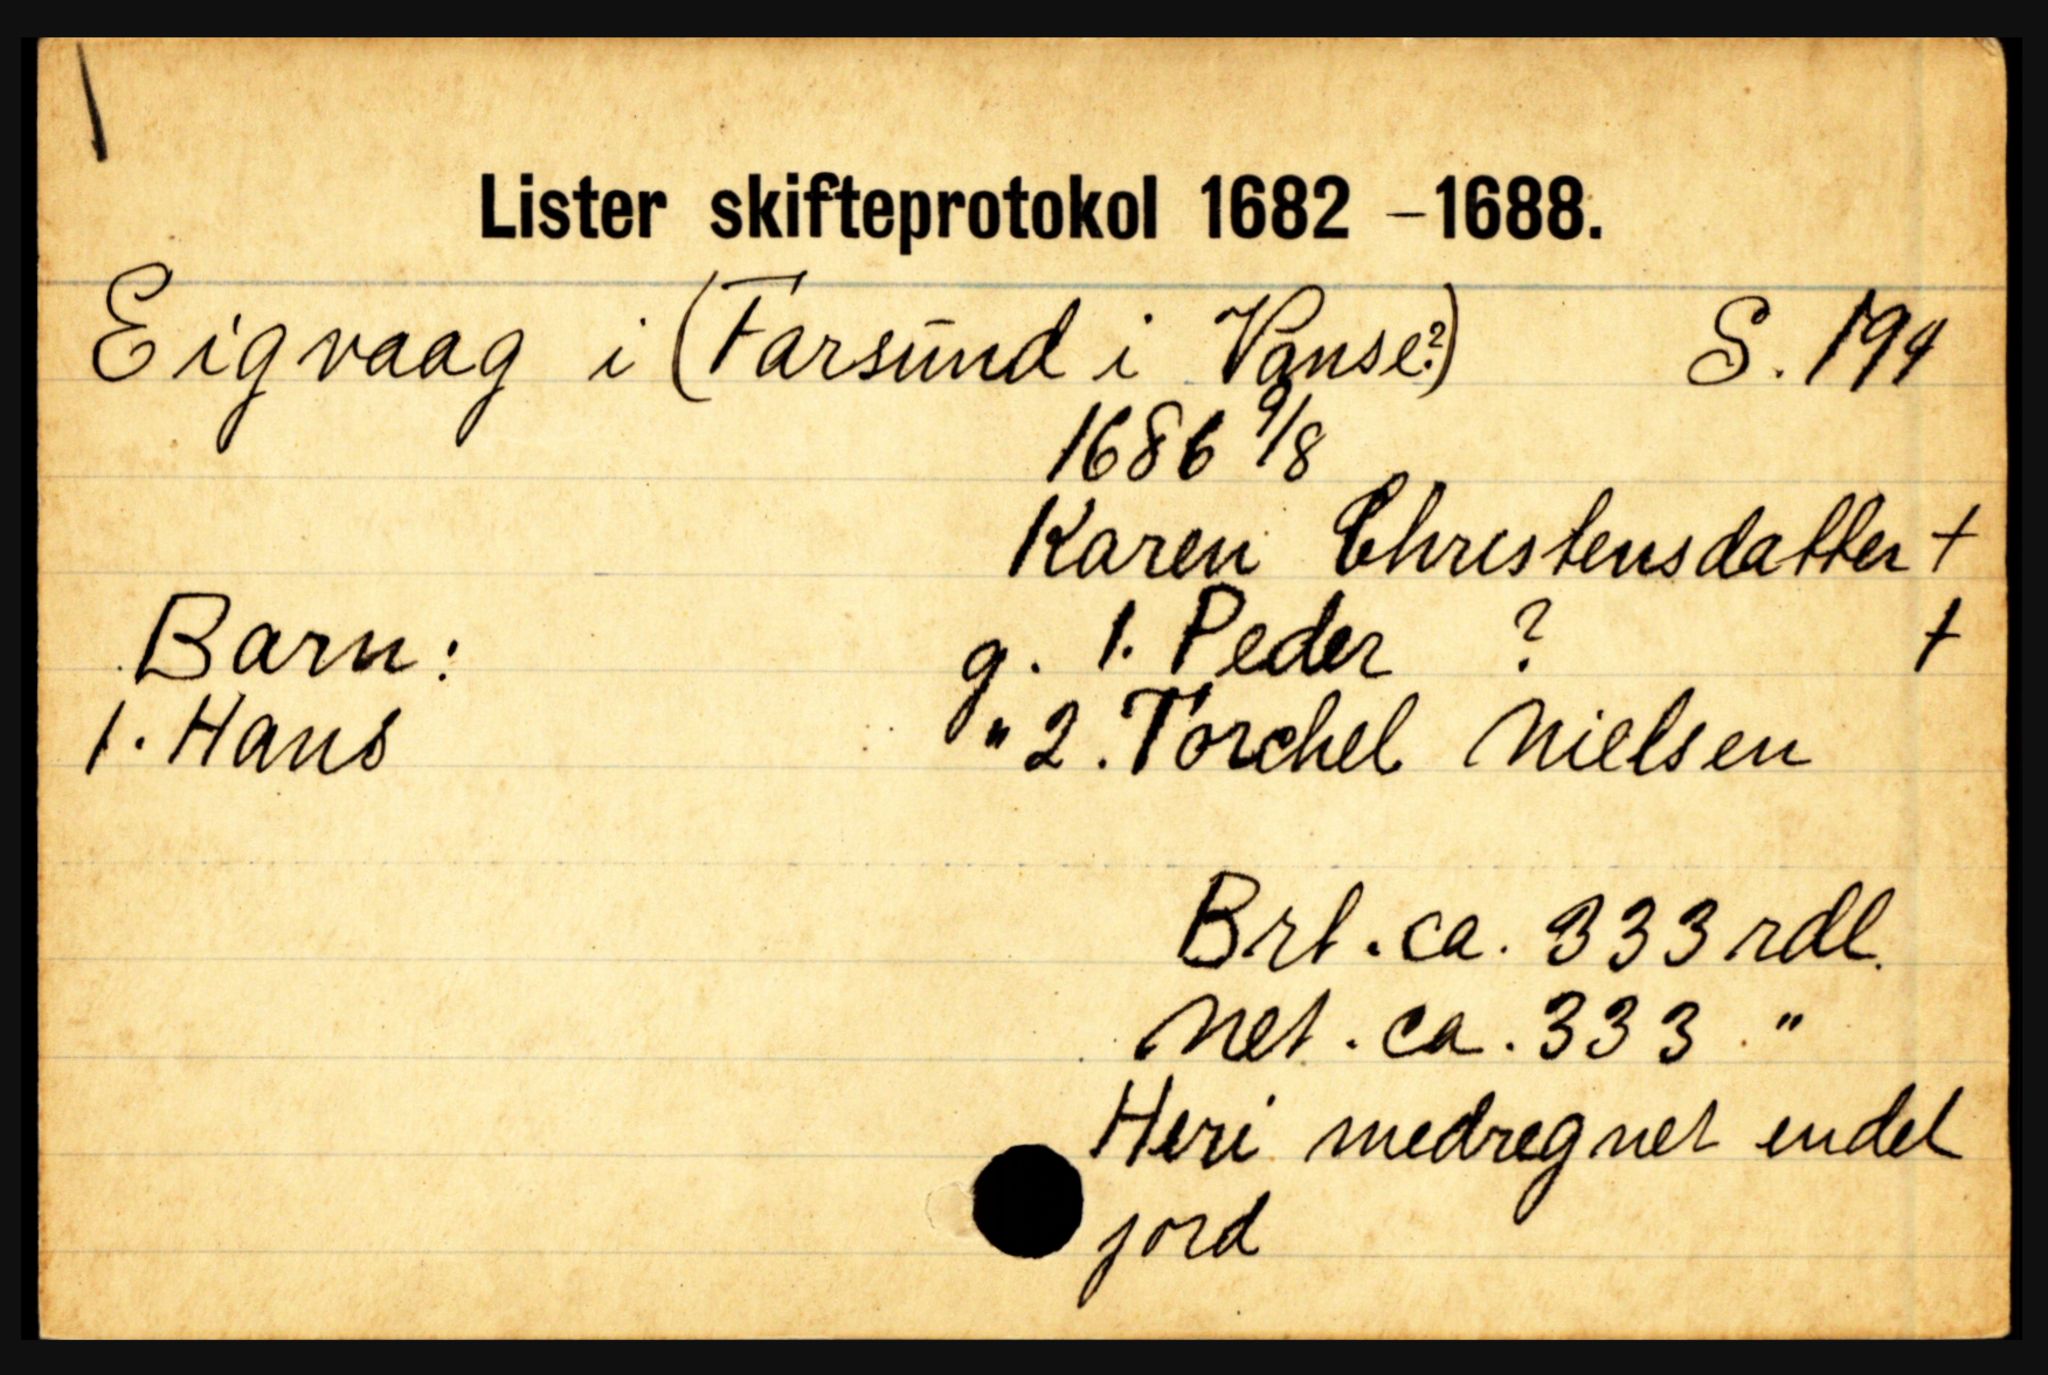 Lister skifteprotokol 1682 - 1688.
Eigvaag i (Farsund i Vanse?) S. 194
1686 9/8
Karen Christensdatter +
Barn: g. 1. Peder ? +
1. Hans " 2. Torchel Nielsen
Brt. ca. 333 rdl.
Net. ca. 333 "
Heri medregnet endel
jord